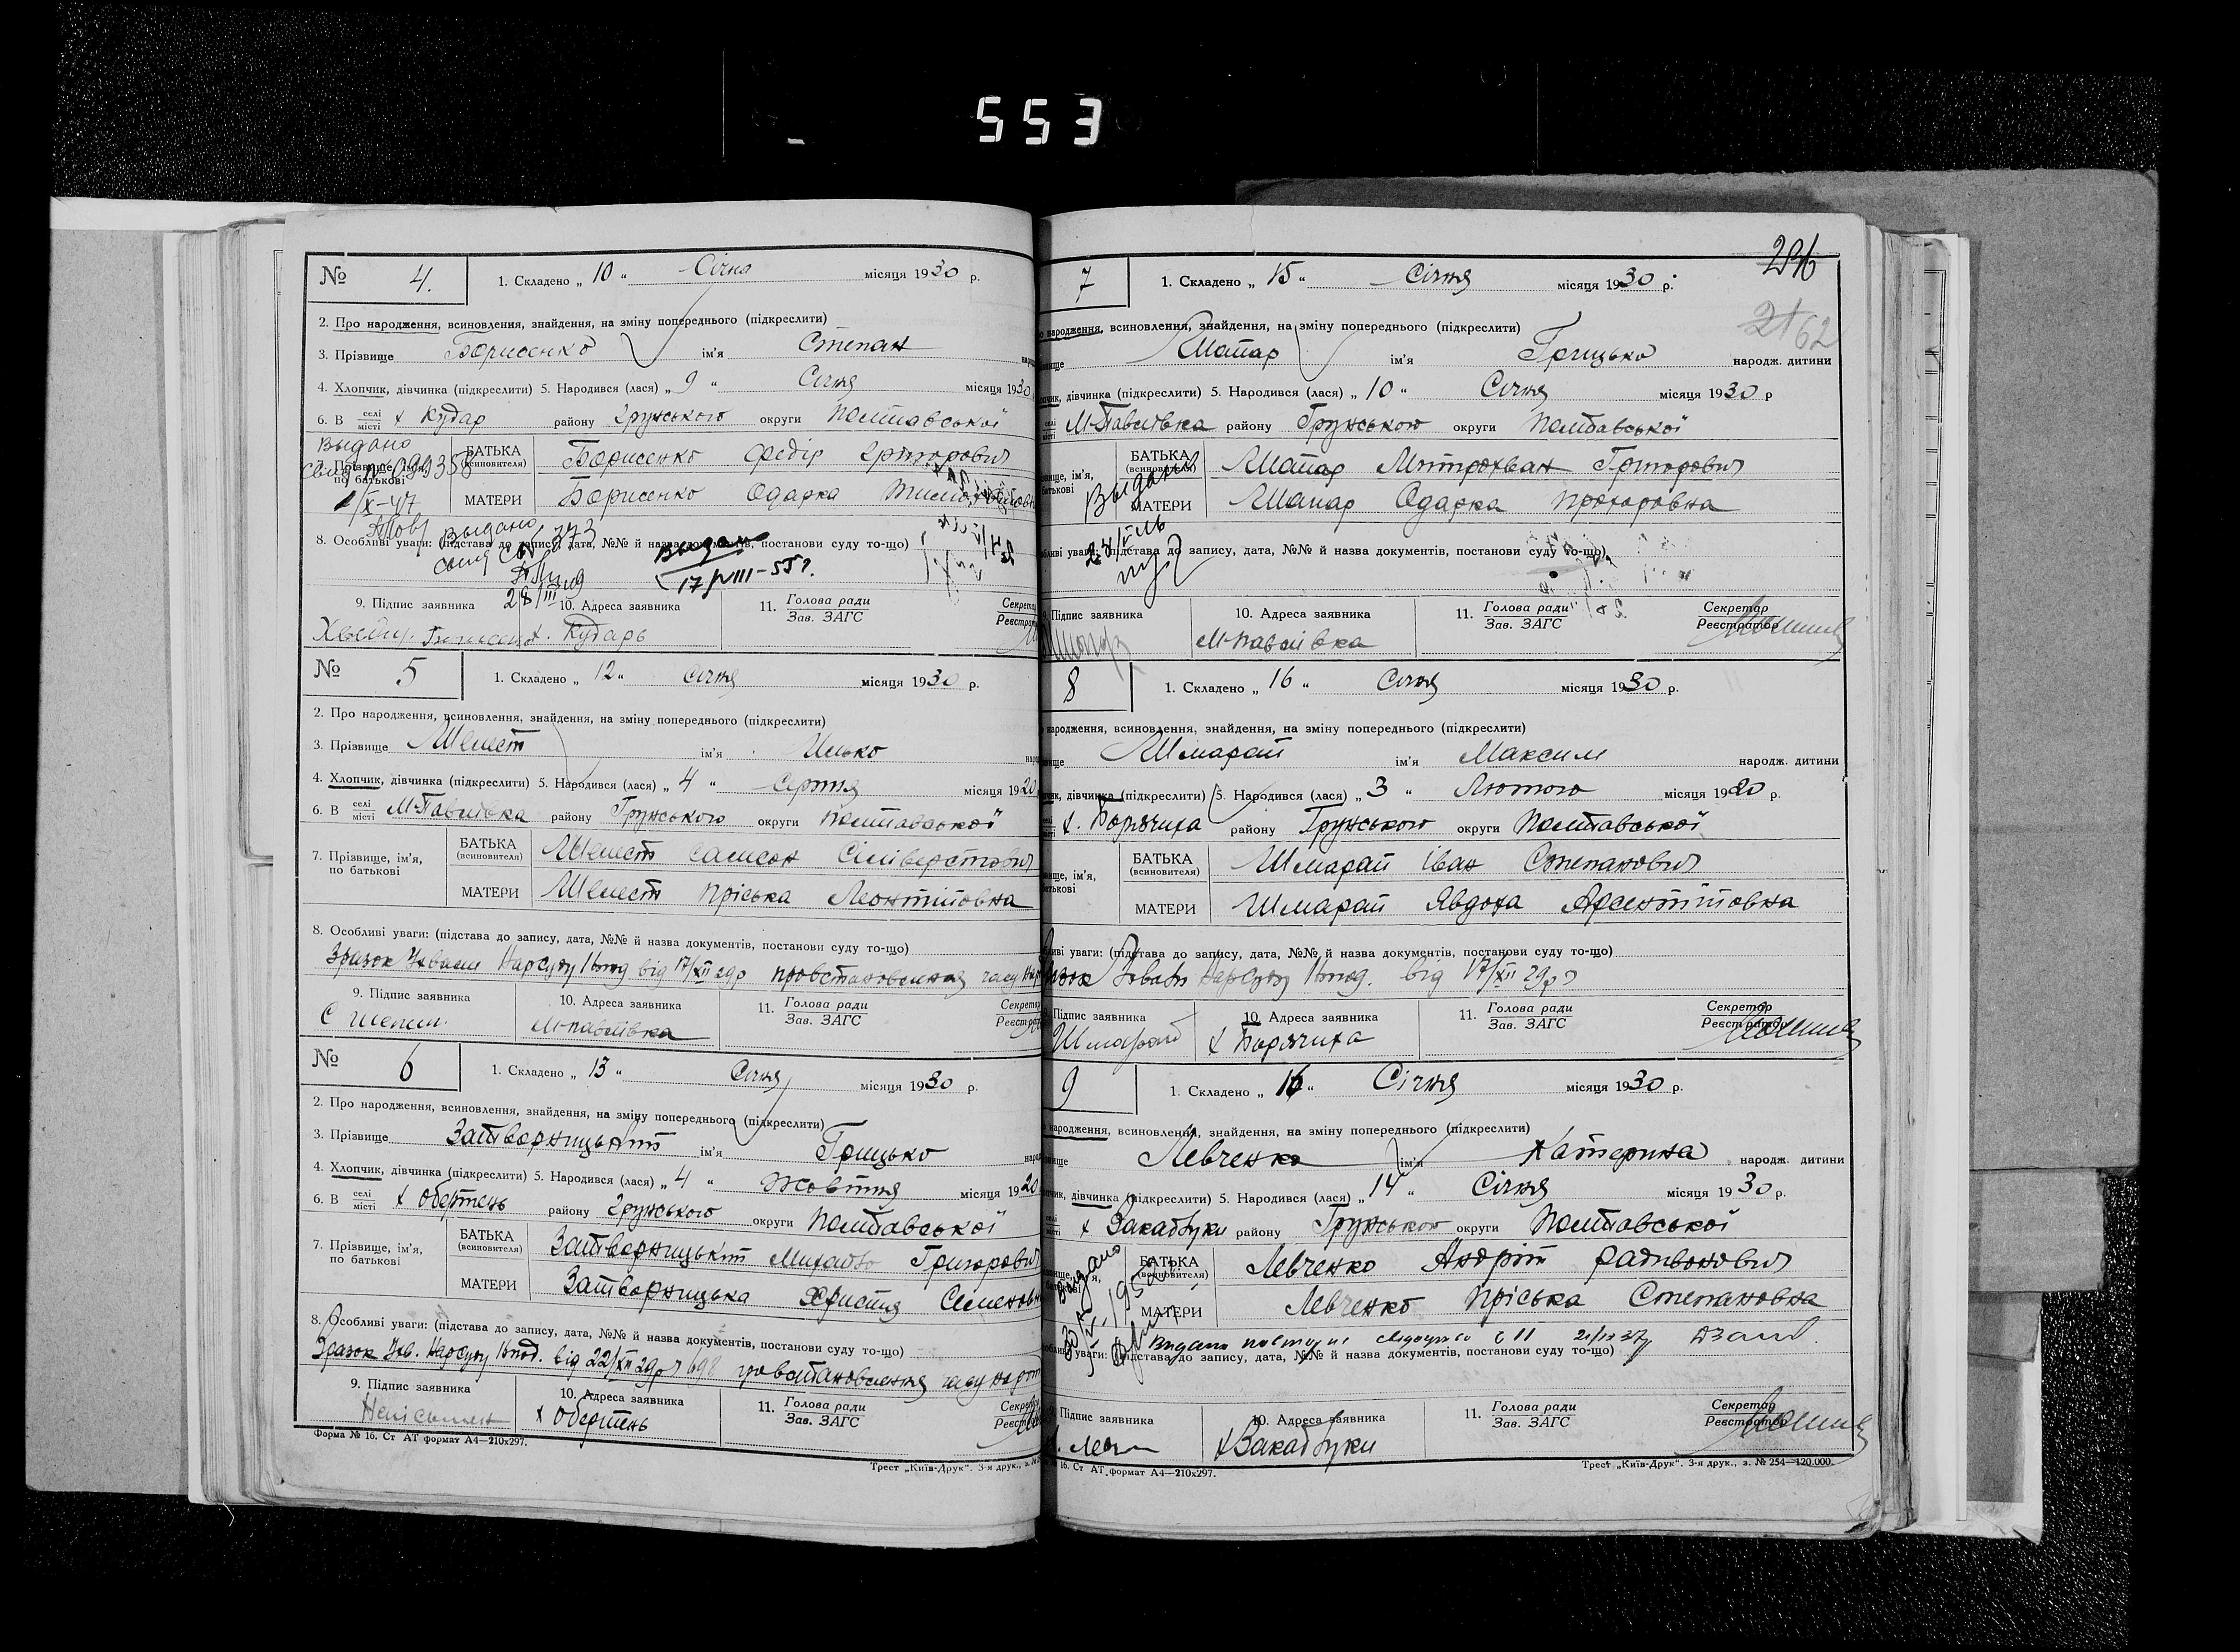 553
№ 4. 1. Складено „ 10 “ Січня місяця 1930 р.
2. Про народження, всиновлення, знайдення, на зміну попереднього (підкреслити)
3. Прізвище Борисенко ім'я Степан
4. Хлопчик, дівчинка (підкреслити) 5. Народився (лася) „ 9 “ Січня місяця 1930
6. В селі місті х Кудар району Грунського округи Полтавської
Выдано
7. Прізвище, ім'я, по батькові
БАТЬКА (всиновителя) Борисенко Федір Григорович
МАТЕРИ Борисенко Одарка
1/X-47
Выдано
8. Особливі уваги: (підстава до запису, дата, №№ й назва документів, постанови суду то-що)
Выдан
17/VIII-55 г.
28/III
9. Підпис заявника 10. Адреса заявника 11. Голова ради Зав. ЗАГС Секретар Реєстратор
х. Кударь
№ 5 1. Складено „ 12 “ Січня місяця 1930 р.
2. Про народження, всиновлення, знайдення, на зміну попереднього (підкреслити)
3. Прізвище Шелест ім'я Илько
4. Хлопчик, дівчинка (підкреслити) 5. Народився (лася) „ 4 “ Серпня місяця 1920
6. В селі місті М-Павлівка району Грунського округи Полтавської
7. Прізвище, ім'я, по батькові
БАТЬКА (всиновителя) Шелест Самсон Сілівестрович
МАТЕРИ Шелест Пріська Леонтіївна
8. Особливі уваги: (підстава до запису, дата, №№ й назва документів, постанови суду то-що)
Нарсуду від 17/XII 29р
9. Підпис заявника 10. Адреса заявника 11. Голова ради Зав. ЗАГС
М-Павлівка
№ 6 1. Складено „ 13 “ Січня місяця 1930 р.
2. Про народження, всиновлення, знайдення, на зміну попереднього (підкреслити)
3. Прізвище Затворницький ім'я Грицько
4. Хлопчик, дівчинка (підкреслити) 5. Народився (лася) „ 4 “ Жовтня місяця 1920
6. В селі місті х Обертень району Грунського округи Полтавської
7. Прізвище, ім'я, по батькові
БАТЬКА (всиновителя) Затворницький Михайло Григорович
МАТЕРИ Затворницька Христя Семеновна
8. Особливі уваги: (підстава до запису, дата, №№ й назва документів, постанови суду то-що)
Нарсуду від 22/XII 29р
9. Підпис заявника 10. Адреса заявника 11. Голова ради Зав. ЗАГС
х Обертень
Форма № 16. Ст АТ формат А4—210x297.
Трест „Київ-Друк“. 3-я друк., з. №
7 1. Складено „ 15 “ Січня місяця 1930 р.
62
всиновлення, знайдення, на зміну попереднього (підкреслити)
Шапар ім'я Грицько народж. дитини
дівчинка (підкреслити) 5. Народився (лася) „ 10 “ Січня місяця 1930 р
М-Павлівка району Грунського округи Полтавської
БАТЬКА (всиновителя) Шапар Митрохван Григорович
Выдано
МАТЕРИ Шапар Одарка Прохоровна
уваги: (підстава до запису, дата, №№ й назва документів, постанови суду то-що)
Підпис заявника 10. Адреса заявника 11. Голова ради Зав. ЗАГС Секретар Реєстратор
М-Павлівка
8 1. Складено „ 16 “ Січня місяця 1930 р.
народження, всиновлення, знайдення, на зміну попереднього (підкреслити)
Шмарай ім'я Максим народж. дитини
дівчинка (підкреслити) 5. Народився (лася) „ 3 “ Лютого місяця 1920 р.
х. Борячиха району Грунського округи Полтавської
БАТЬКА (всиновителя) Шмарай Іван Степанович
МАТЕРИ Шмарай Явдоха Арсентіївна
уваги: (підстава до запису, дата, №№ й назва документів, постанови суду то-що)
Нарсуду від 17/XII 29р
Підпис заявника 10. Адреса заявника 11. Голова ради Зав. ЗАГС Секретар Реєстратор
Шмарай х Борячиха
9 1. Складено „ 16 “ Січня місяця 1930 р.
народження, всиновлення, знайдення, на зміну попереднього (підкреслити)
Левченко ім'я Катерина народж. дитини
дівчинка (підкреслити) 5. Народився (лася) „ 14 “ Січня місяця 1930 р.
х Закабуки району Грунського округи Полтавської
БАТЬКА (всиновителя) Левченко Андрій Радивонович
МАТЕРИ Левченко Пріська Степановна
уваги: (підстава до запису, дата, №№ й назва документів, постанови суду то-що)
Підпис заявника 10. Адреса заявника 11. Голова ради Зав. ЗАГС Секретар Реєстратор
х Закабуки
16. Ст АТ формат А4—210x297.
Трест „Київ-Друк“. 3-я друк., з. № 254—120.000.